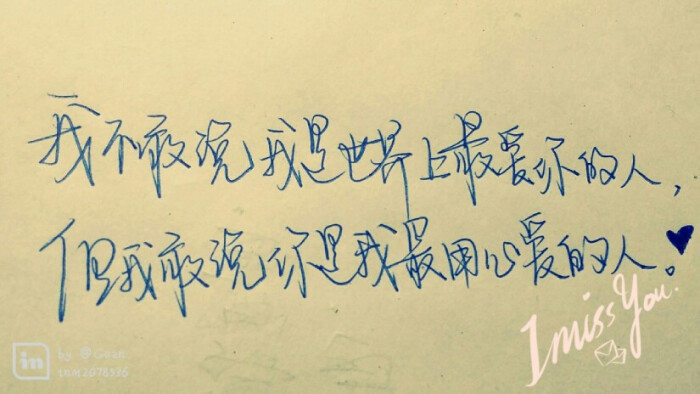 我不敢说我是世界上最爱你的人，
但我敢说你是我最用心爱的人。
I miss You.
in
by @Guan